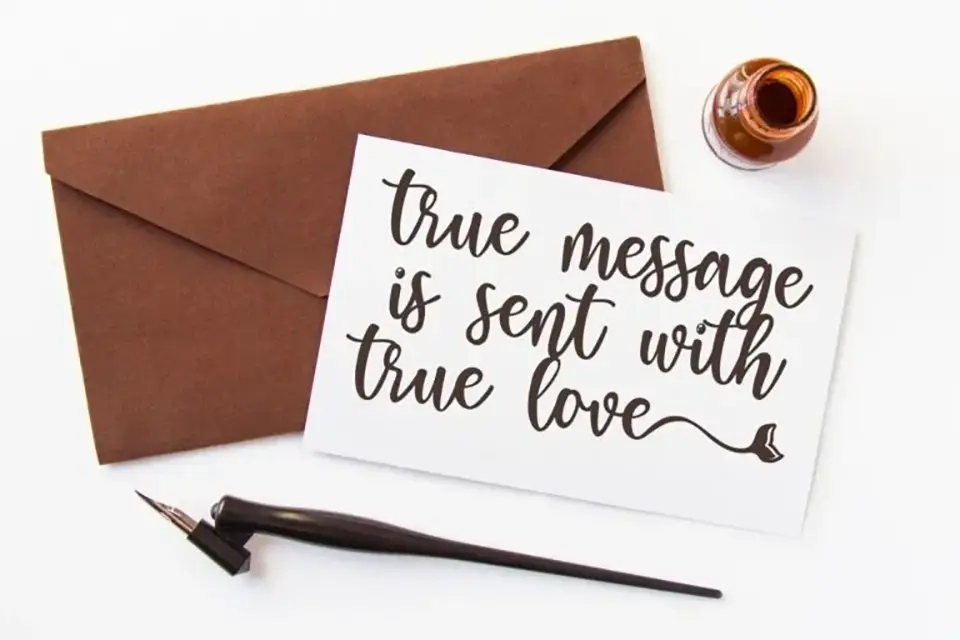 true message
is sent with
true love